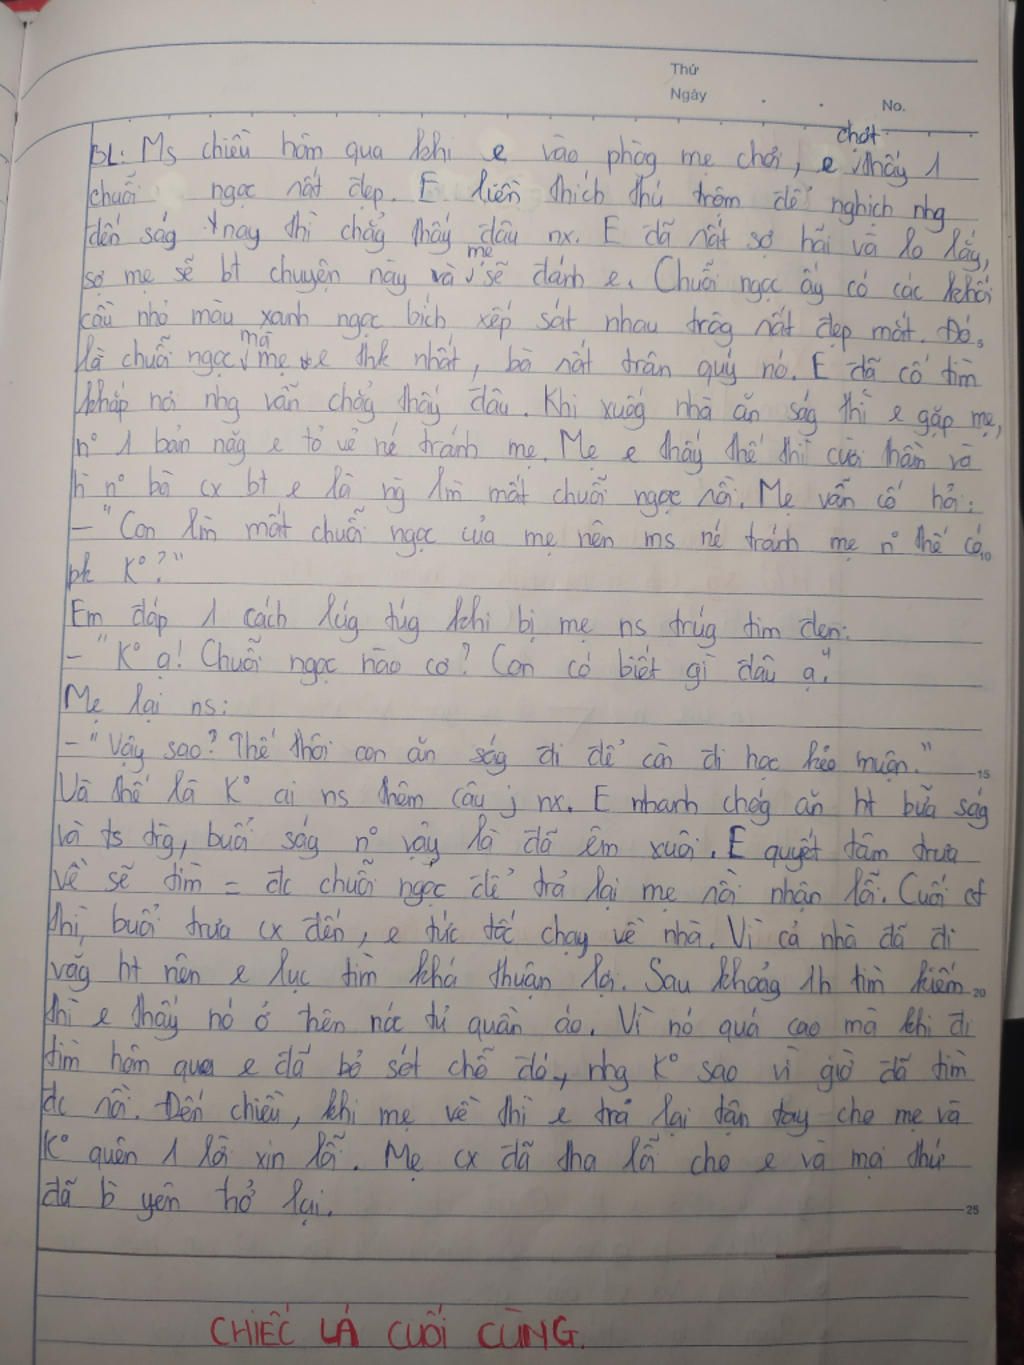 Thứ
Ngày . . No.
BL: Ms chiều hôm qua khi e vào phòg mẹ chơi, e chợt thấy 1
chuỗi ngọc rất đẹp. E liền thích thú trộm để nghịch nhg
đến ság nay thì chẳg thấy đâu nx. E đã rất sợ hãi và lo lắg,
sợ mẹ sẽ bt chuyện này và mẹ sẽ đánh e. Chuỗi ngọc ấy có các khối
cầu nhỏ màu xanh ngọc bích xếp sát nhau trôg rất đẹp mắt. Đó
là chuỗi ngọc mà mẹ e thk nhất, bà rất trân quý nó. E đã cố tìm
khắp nơi nhg vẫn chẳg thấy đâu. Khi xuốg nhà ăn ság thì e gặp mẹ,
n° 1 bản năg e tỏ vẻ né tránh mẹ. Mẹ e thấy thế thì cười thầm và
h n° bà cx bt e là ng lm mất chuỗi ngọc rồi. Mẹ vẫn cố hỏi:
- "Con lm mất chuỗi ngọc của mẹ nên ms né tránh mẹ n° thế có 10
pk K°?"
Em đáp 1 cách lúg túg khi bị mẹ ns trúg tim đen:
- "K° ạ! Chuỗi ngọc nào cơ? Con có biết gì đâu ạ."
Mẹ lại ns:
- "Vậy sao? Thế thôi con ăn ság đi để còn đi học kẻo muộn." 15
Và thế là K° ai ns thêm câu j nx. E nhanh chóg ăn ht bữa ság
và ts trg, buổi ság n° vậy là đã êm xuôi. E quyết tâm trưa
về sẽ tìm = đc chuỗi ngọc để trả lại mẹ rồi nhận lỗi. Cuối cf
thì, buổi trưa cx đến, e tức tốc chạy về nhà. Vì cả nhà đã đi
vắg ht nên e lục tìm khá thuận lợi. Sau khoảg 1h tìm kiếm 20
thì e thấy nó ở trên nóc tủ quần áo. Vì nó quá cao mà khi đi
tìm hôm qua e đã bỏ sót chỗ đó, nhg K° sao vì giờ đã tìm
đc rồi. Đến chiều, khi mẹ về thì e trả lại tận tay cho mẹ và
K° quên 1 lời xin lỗi. Mẹ cx đã tha lỗi cho e và mọi thứ
đã b yên trở lại. 25
CHIẾC LÁ CUỐI CÙNG.